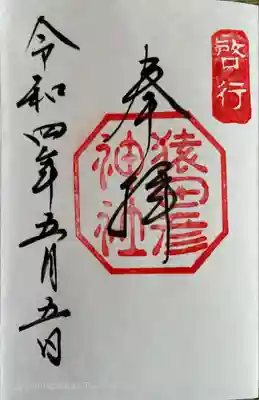 啓行
奉拝
猿田彦
神社
令和四年五月五日